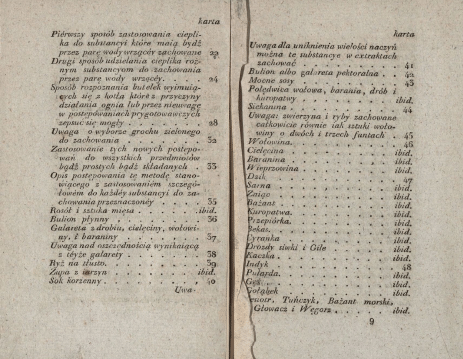 karta
Pierwszy sposób zastosowania ciepli-
ka do substancyi które maią bydź
przez parę wody wrzącéy zachowane 22
Drugi sposób udzielania cieplika roż-
nym substancyom do zachowania
przez parę wody wrzącéy. 24
Sposób rozpoznania butelek wyimuią-
cych się z kotła które z przyczyny
działania ognia lub przez nieuwagę
w postępowaniach przygotowawczych
zepsuć się mogły 28
Uwaga o wyborze grochu zielonego
do zachowania 32
Zastosowanie tych nowych postępo-
wań do wszystkich przedmiotów
bądź prostych bądź składanych 33
Opis postępowania tę metodę stano-
wiącego z zastosowaniem szczegó-
łowém do każdéy substancyi do za-
chowania przeznaczonéy 35
Rosół i sztuka mięsa ibid.
Bulion płynny 36
Galareta z drobiu, cielęciny, wołowi-
ny, i baraniny 37
Uwaga nad oszczędnością wynikaiącą
z téyże galarety 38
Ryż na tłusto 39
Zupa z iarzyn ibid.
Sok korzenny 40
Uwa-
karta
Uwaga dla uniknienia wielości naczyń
można te substancye w extraktach
zachować 41
Bulion albo galareta pektoralna 42
Mocne sosy 43
Polędwica wołowa, barania, drób i
kuropatwy ibid.
Siekanina 44
Uwaga: zwierzyna i ryby zachowane
całkowicie równie iak sztuki woło-
winy o dwóch i trzech funtach 45
Wołowina 46
Cielęcina ibid.
Baranina ibid.
Wieprzowina ibid.
Dzik 47
Sarna ibid.
Zaiąc ibid.
Bażant ibid.
Kuropatwa. ibid.
Przepiórka. ibid.
Bekas. ibid.
Cyranka ibid.
Drozdy siwki i Gile ibid.
Kaczka ibid.
Indyk 48
Pularda. ibid.
Gęś ibid.
Gołąbek ibid.
Tuńczyk, Bażant morski,
Głowacz i Węgorz ibid.
9